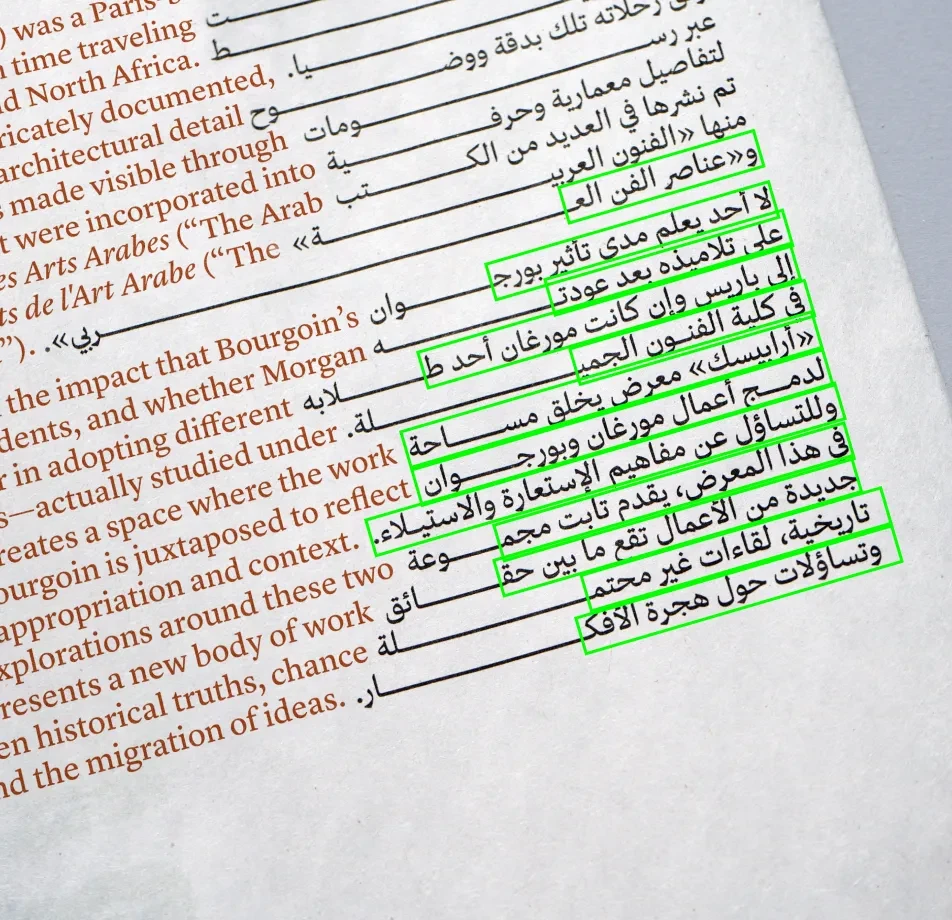 ) was a Paris-
n time traveling
nd North Africa.
ricately documented,
architectural detail
s made visible through
t were incorporated into
es Arts Arabes (“The Arab
ts de l'Art Arabe (“The
”).
the impact that Bourgoin’s
dents, and whether Morgan
r in adopting different
s—actually studied under
reates a space where the work
ourgoin is juxtaposed to reflect
appropriation and context.
xplorations around these two
resents a new body of work
en historical truths, chance
nd the migration of ideas.
رحلاته تلك بدقة ووضـــيا.
عبر رســـوح
لتفاصيل معمارية وحرفـــومات
تم نشرها في العديد من الكـــية
منها «الفنون العربيـــتب
و«عناصر الفن العـــة»
ـــربي».
لا أحد يعلم مدى تأثير بورجـــوان
على تلاميذه بعد عودتـــه
إلى باريس وإن كانت مورغان أحد طـــلابه
في كلية الفنـون الجميـــلة.
«أرابيسك» معرض يخلق مســـاحة
لدمـج أعمال مورغان وبورجـــوان
وللتساؤل عن مفاهيم الإستعارة والاستيـلاء.
في هذا المعرض، يقدم تابت مجمـــوعة
جديدة من الأعمال تقع ما بين حقـــائق
تاريخية، لقاءات غير محتمـــلة
وتساؤلات حول هجرة الأفكـــار.